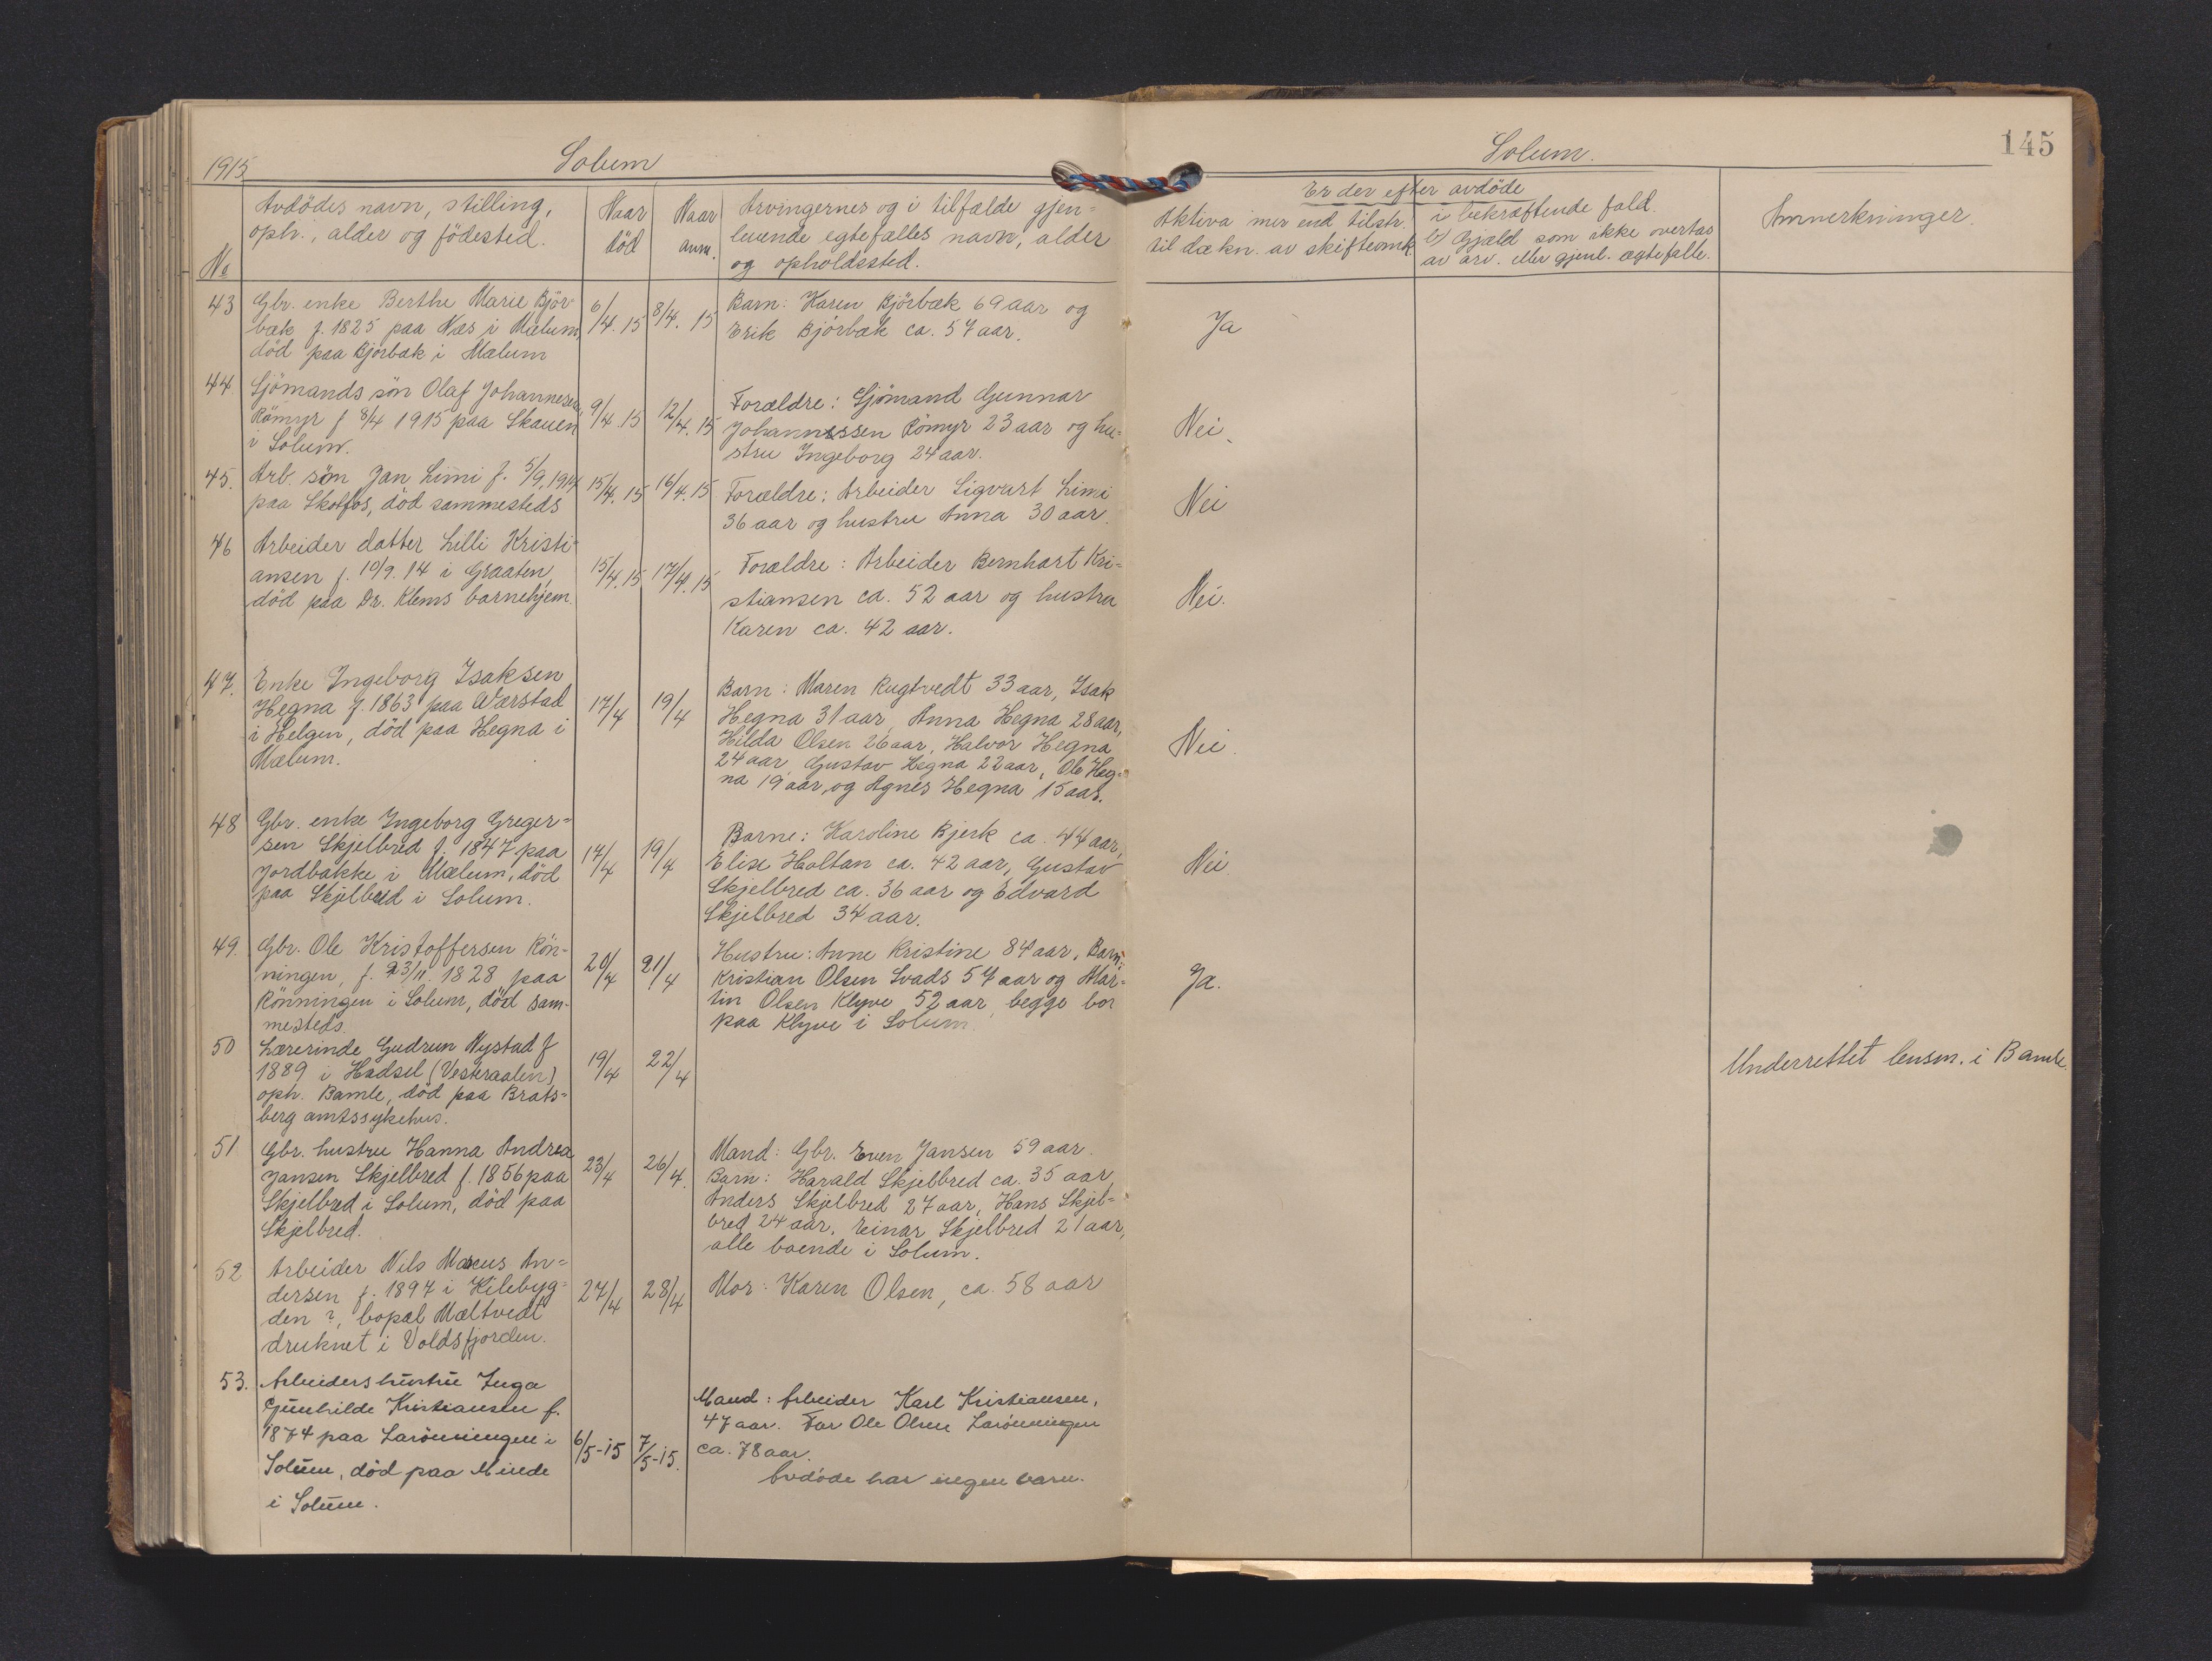 1915
Solum
Solum.
145
No
Avdödes navn, stilling,
oph., alder og födested.
Naar
död
Naar
anm.
Arvingernes og i tilfælde gjen=
levende egtefælles navn, alder
og opholdssted.
Er der efter avdöde
Aktiva mer end tilstr.
til dækn. av skifteomk.
i bekræftende fald.
b) Gjæld som ikke overtas
av arv. eller gjenl. ægtefælle.
Anmerkninger.
43
Gbr. enke Berthe Marie Björ=
bæk f. 1825 paa Næs i Mælum,
död paa Bjørbæk i Mælum
6/4.15
8/4. 15
Barn: Karen Bjørbæk 69 aar og
Erik Bjørbæk ca. 57 aar.
Ja
44
Sjömands sön Olaf Johannesen
Römyr f 8/4 1915 paa Skauen
i Solum.
9/4.15
12/4.15
Forældre: Sjömand Gunnar
Johannessen Römyr 23 aar og hu=
stru Ingeborg 24 aar.
Nei.
45.
Arb. sön Jan Limi f. 5/9.1914
paa Skotfos, död sammesteds
15/4.15
16/4.15
Forældre: Arbeider Sigvart Limi
36 aar og hustru Anna 30 aar.
Nei
46
Arbeider datter Lilli Kristi=
ansen f. 10/9.14 i Graaten,
död paa Dr. Klems barnehjem.
15/4.15
17/4.15
Forældre: Arbeider Bernhart Kri=
stiansen ca. 52 aar og hustru
Karen ca. 42 aar.
Nei.
47.
Enke Ingeborg Isaksen
Hegna f. 1863 paa Værstad
i Helgen, död paa Hegna i
Mælum.
17/4
19/4
Barn: Maren Rugtvedt 33 aar, Isak
Hegna 31 aar, Anna Hegna 28 aar,
Hilda Olsen 26 aar, Halvor Hegna
24 aar, Gustav Hegna 22 aar, Ole Heg=
na 19 aar, og Agnes Hegna 15 aar.
Nei.
48
Gbr. enke Ingeborg Greger=
sen Skjelbred f. 1847 paa
Jordbakke i Mælum, död
paa Skjelbred i Solum.
17/4
19/4
Barne: Karoline Bjerk ca. 44 aar,
Elise Holtan ca. 42 aar, Gustav
Skjelbred ca. 36 aar og Edvard
Skjelbred 34 aar.
Nei.
49.
Gbr. Ole Kristoffersen Rön=
ningen, f. 23/11 1828 paa
Rönningen i Solum, död sam=
mesteds.
20/4
21/4
Hustru: Anne Kristine 84 aar. Barn:
Kristian Olsen Svads 57 aar og Mar=
tin Olsen Klyve 52 aar, begge bor
paa Klyve i Solum
Ja.
50
Lærerinde Gudrun Nystad f
1889 i Hadsel (Vesteraalen)
oph. Bamle, död paa Brats=
berg amtssykehus.
19/4
22/4
Underrettet lensm. i Bamle.
51
Gbr. hustru Hanna Andrea
Jansen Skjelbred f. 1856 paa
Skjelbred i Solum, död paa
Skjelbred.
23/4
26/4.
Mand: Gbr. Even Jansen 59 aar.
Barn: Harald Skjelbred ca. 35 aar,
Anders Skjelbred 27 aar, Hans Skjel=
bred 24 aar, Einar Skjelbred 21 aar,
alle boende i Solum.
52
Arbeider Nils Marcus An=
dersen f. 1897 i Kilebyg=
den ?, bopæl Mæltvedt
druknet i Voldsfjorden.
27/4
28/4
Mor: Karen Olsen, ca. 58 aar
53.
Arbeiders hustru Inga
Gunhilde Kristiansen f.
1874 paa Larönningen i
Solum, död paa Minde
i Solum.
6/5-15
7/5-15.
Mand: Arbeider Karl Kristiansen,
47 aar. Far Ole Olsen Larönningen
ca. 78 aar.
Avdöde har ingen barn.